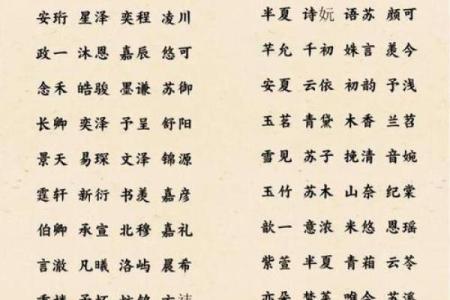 安珩 星泽 奕程 凌川
政一 沐恩 嘉辰 悠可
念禾 皓骏 墨谦 苏御
长卿 奕泽 予呈 舒阳
景天 易琛 文泽 锦源
霆轩 新衍 书羡 嘉彦
伯卿 承宣 北穆 嘉礼
言澈 凡曦 洛屿 晨希
半夏 诗妧 语苏 颜可
芊允 千初 姝言 羡今
安夏 云依 初韵 予浅
玉茗 青黛 木香 兰苕
雪见 苏子 挽清 音婉
玉竹 苏木 山奈 纪棠
歆一 意浓 来悠 恩瑶
紫萱 半夏 青葙 云苓